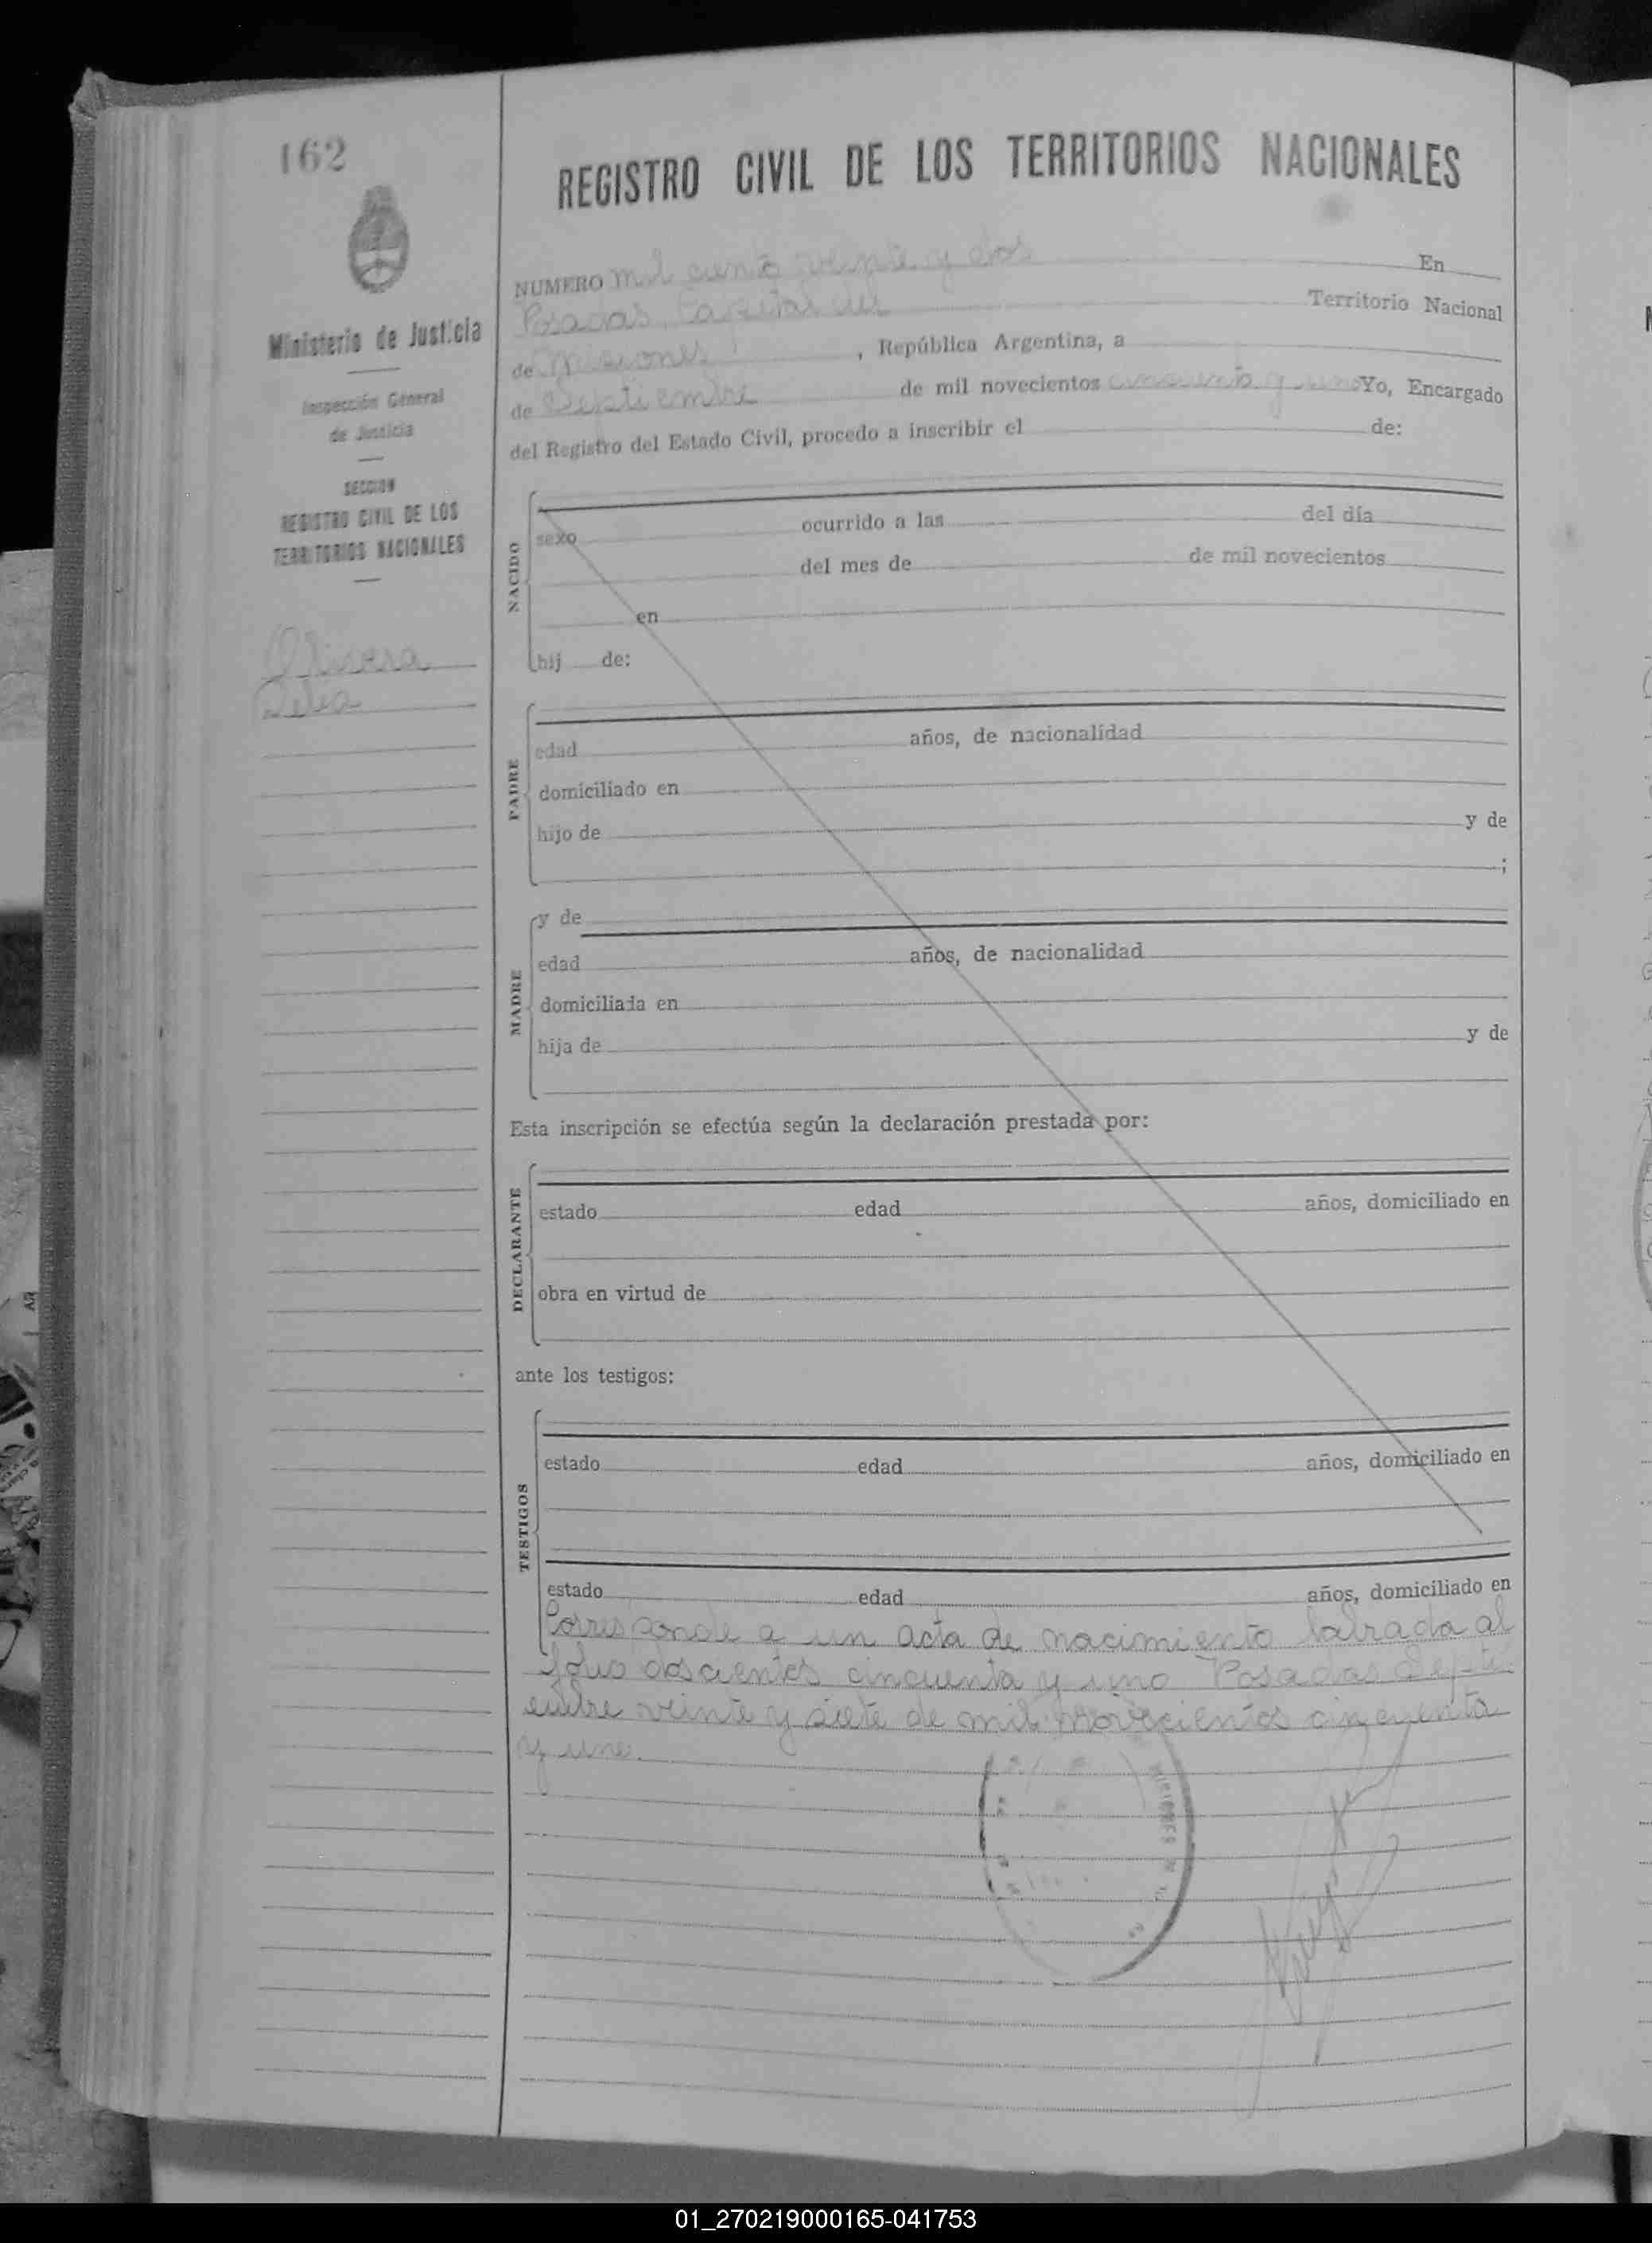 162
Ministerio de Justicia
Inspección General
de Justicia
SECCION
REGISTRO CIVIL DE LOS
TERRITORIOS NACIONALES
Olivera
Delia
REGISTRO CIVIL DE LOS TERRITORIOS NACIONALES
NUMERO mil ciento veinte y dos En
Posadas Capital del Territorio Nacional
de Misiones, República Argentina, a
de Septiembre de mil novecientos cincuenta y uno Yo, Encargado
del Registro del Estado Civil, procedo a inscribir el de:
NACIDO
sexo ocurrido a las del día
del mes de de mil novecientos
en
hij de:
PADRE
edad años, de nacionalidad
domiciliado en
hijo de y de
;
MADRE
y de
edad años, de nacionalidad
domiciliada en
hija de y de
Esta inscripción se efectúa según la declaración prestada por:
DECLARANTE
estado edad años, domiciliado en
obra en virtud de
ante los testigos:
TESTIGOS
estado edad años, domiciliado en
estado edad años, domiciliado en
Corresponde a un acta de nacimiento labrada al
folio doscientos cincuenta y uno Posadas Septi
embre veinte y siete de mil novecientos cincuenta
y uno.
MISIONES
01_270219000165-041753